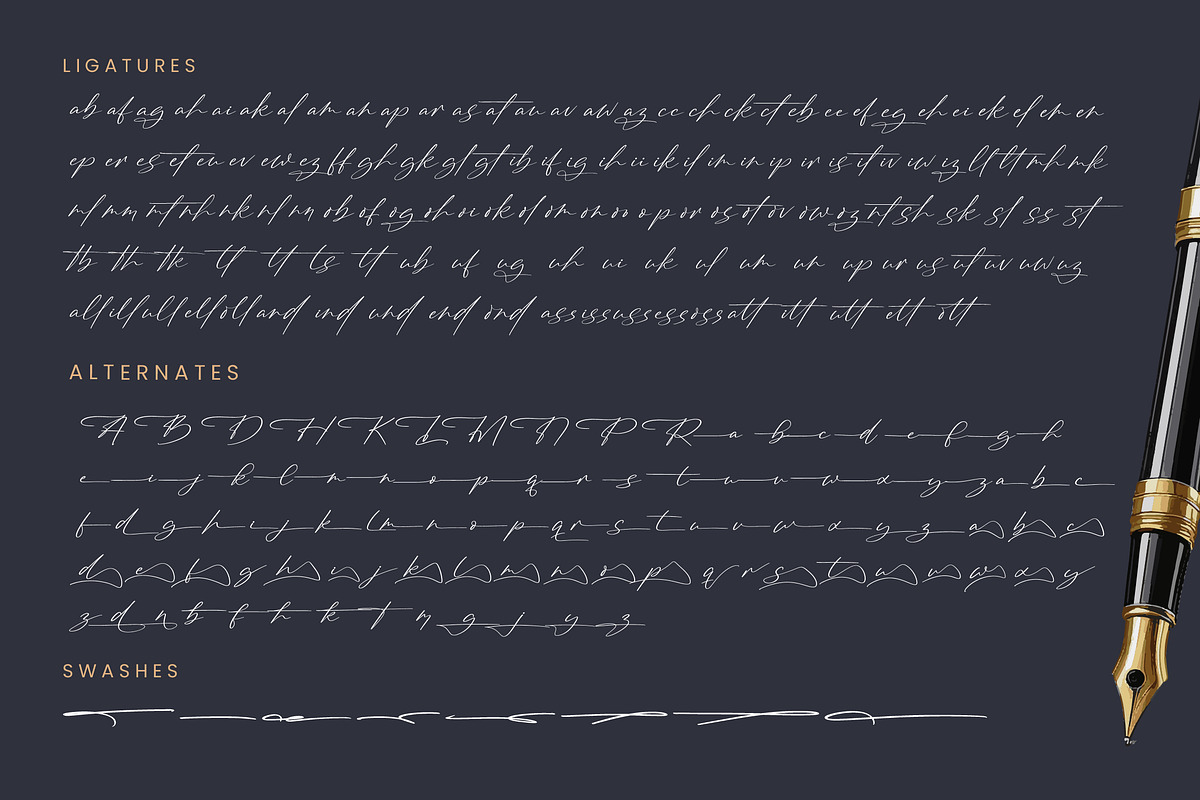 LIGATURES
ab af ag ah ai ak al am an ap ar as at au av aw az cc ch ck ct eb ee ef eg eh ei ek el em en
ep er es et eu ev ew ez ff gh gk gl gt ib if ig ih ii ik il im in ip ir is it iv iw iz ll lt mh mk
ml mm mt nh nk nl nn ob of og oh oi ok ol om on oo op or os ot ov ow oz rt sh sk sl ss st
tb th tk tf tt ts lt ub uf ug uh ui uk ul um un up ur us ut uv uw uz
all ill ull ell oll and ind und end ond ass iss uss ess oss att itt utt ett ott
ALTERNATES
A B D H K L M N P R a b c d e f g h
e i j k l m n o p q r s t u v w x y z a b c
f d g h i j k l m n o p q r s t u v w x y z a b c
d e f g h i j k l m n o p q r s t u v w x y
z d n b f h k t m g j y z
SWASHES